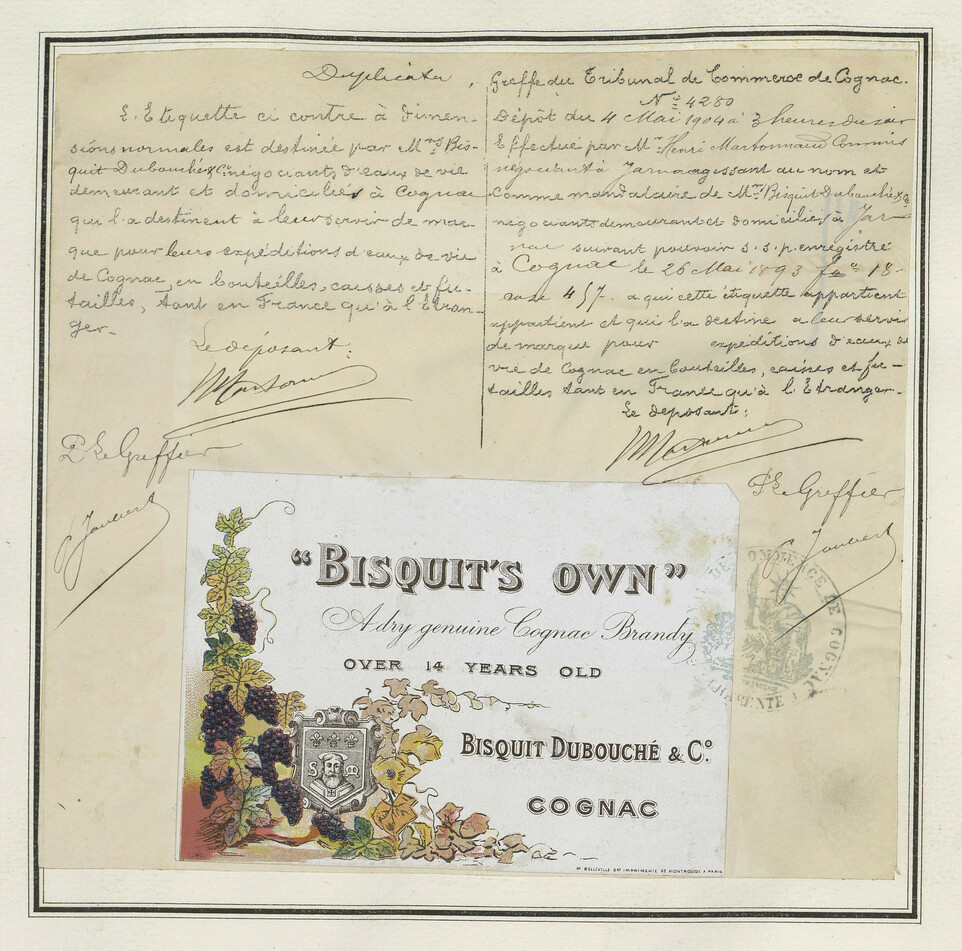 Duplicata
L'Etiquette ci contre à dimen-
sions normales est destinée par Mrs Bis-
quit Dubouché & Cie négociants d'eaux de vie
demeurant et domiciliés à Cognac
qui l'a destinent à leur servir de mar-
que pour leurs expéditions d'eaux de vie
de Cognac, en bouteilles, caisses et fu-
tailles, tant en France qu'à l'Etran-
ger.-
Le déposant:
P. Le Greffier
P. Joubert
Greffe du Tribunal de Commerce de Cognac.
No 4280
Dépôt du 4 Mai 1904 à 3 heures du soir
Effectué par Mr Henri Martonnaud Commis
négociant à Jarnac agissant au nom et
comme mandataire de Mrs Bisquit Dubouché & Cie
négociants demeurant et domiciliés à Jar-
nac suivant pouvoir s.s.p. enregistré
à Cognac le 26 Mai 1893 fo 18
case 457. a qui cette étiquette appartient
appartient et qui l'a destine a leur servir
de marque pour expéditions d'eaux de
vie de Cognac en bouteilles, caisses et fu-
tailles tant en France qu'à l'Etranger.-
Le déposant:
P. Le Greffier
P. Joubert
"BISQUIT'S OWN"
A dry genuine Cognac Brandy
OVER 14 YEARS OLD
BISQUIT DUBOUCHÉ & Co.
COGNAC
S M
DE COGNAC
CHARENTE
M. BELLEVILLE Dr IMPRIMERIE DE MONTROUGE A PARIS